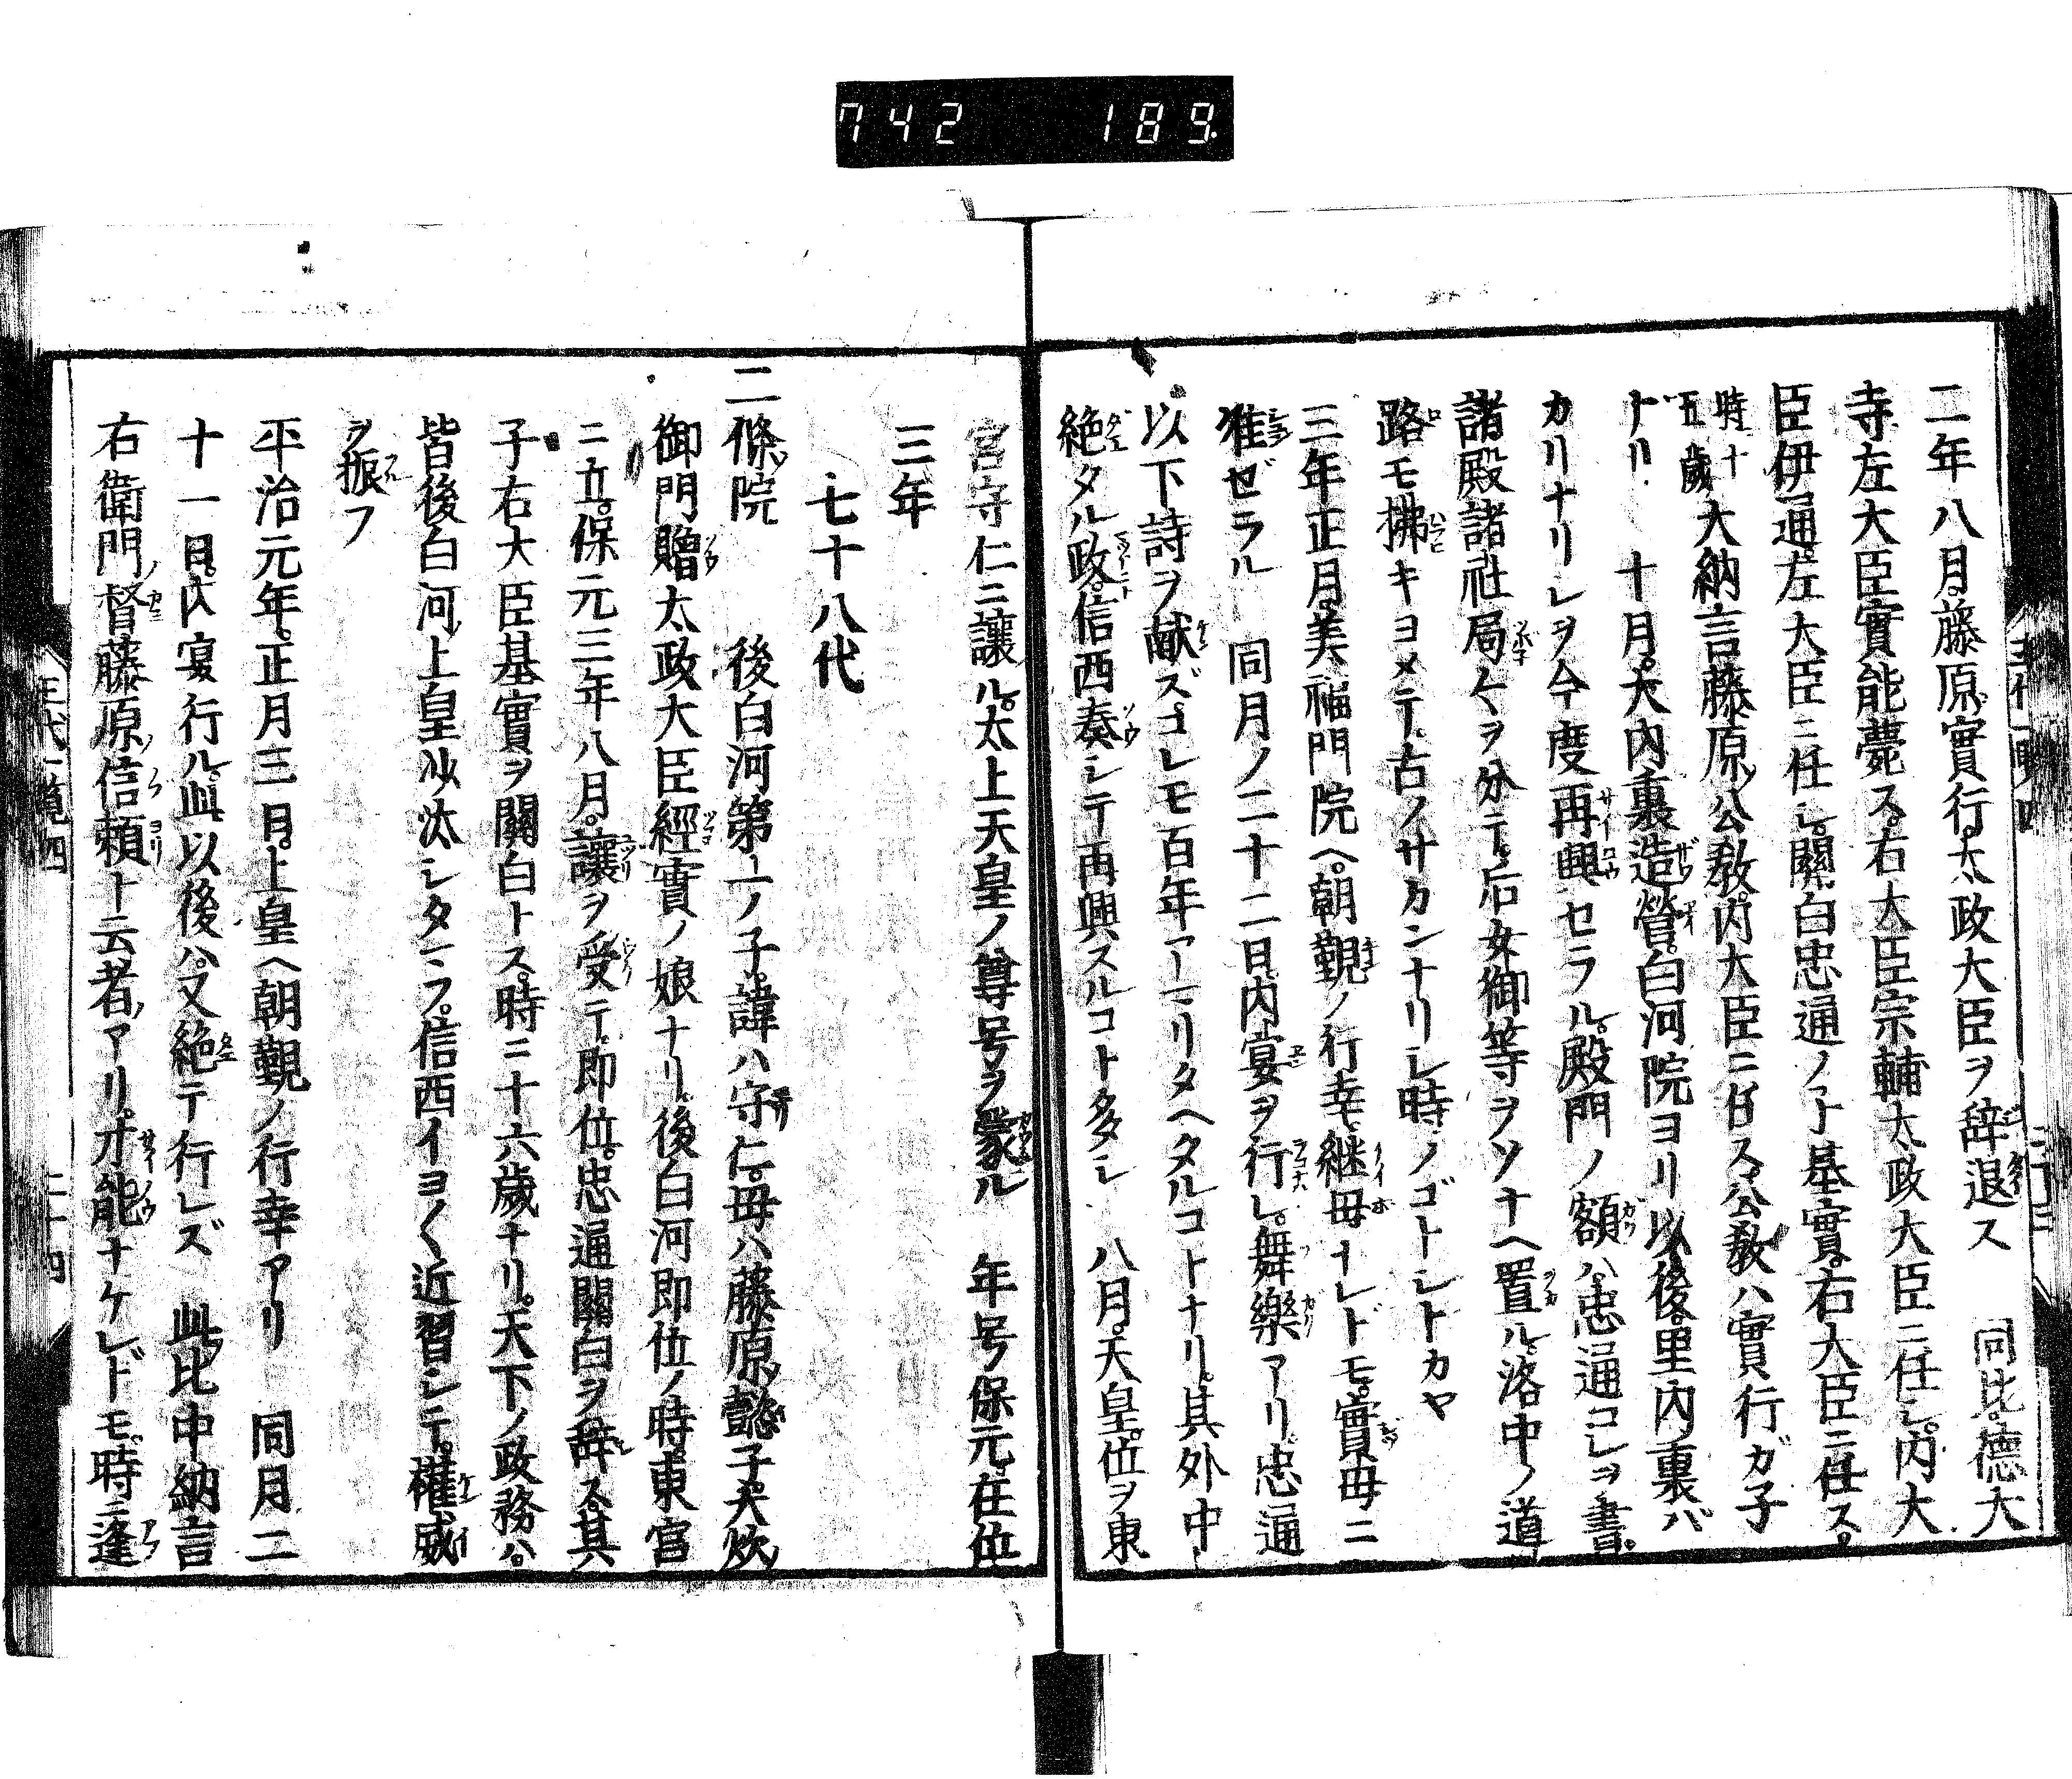 742 189
二年八月藤原實行太政大臣ヲ辞退ス 同比德大
寺左大臣實能薨ス右大臣宗輔太政大臣ニ任シ內大
臣伊通左大臣ニ任シ關白忠通ノ子基實右大臣ニ任ス
時十五歲大納言藤原公教內大臣ニ任ス公教ハ實行ガ子
ナリ 十月大內裏造營白河院ヨリ以後里內裏バ
カリナリシヲ今度再興セラル殿門ノ額ハ忠通コレヲ書
諸殿諸社局々ヲ分テ后女御等ヲソナヘ置ル洛中ノ道
路モ拂キヨメテ古ノサカンナリシ時ノゴトシトカヤ
三年正月美福門院ヘ朝覲ノ行幸継母ナレドモ實母ニ
准ゼラル 同月ノ二十二日內宴ヲ行レ舞樂アリ忠通
以下詩ヲ献ズコレモ百年アマリタヘタルコトナリ其外中
絶タル政信西奏シテ再興スルコト多シ 八月天皇位ヲ東
宮守仁ニ讓ル太上天皇ノ尊号ヲ蒙ル 年号保元在位
三年
七十八代
二條院 後白河第一ノ子諱ハ守仁母ハ藤原懿子大炊
御門贈太政大臣經實ノ娘ナリ後白河即位ノ時東宮
ニ立保元三年八月讓ヲ受テ即位忠通關白ヲ辞ス其
子右大臣基實ヲ關白トス時ニ十六歲ナリ天下ノ政務ハ
皆後白河上皇沙汰シタマフ信西イヨ〱近習シテ權威
ヲ振フ
平治元年正月三日上皇ヘ朝覲ノ行幸アリ 同月二
十一日內宴行ル此以後ハ又絶テ行レズ 此比中納言
右衛門督藤原信賴ト云者アリ才能ナケレドモ時ニ逢
王代一覽四 二十四